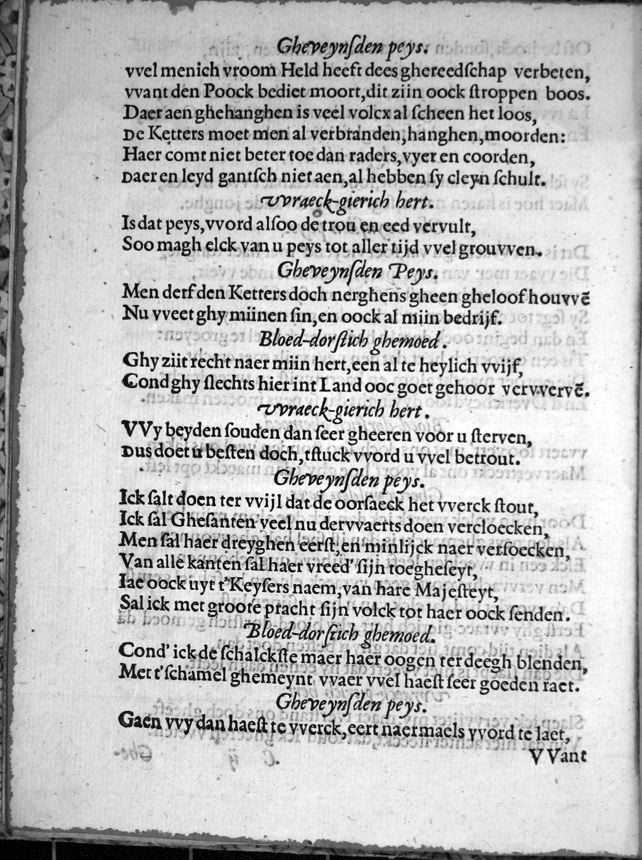 Gheveynſden peys.
vvel menich vroom Held heeft dees ghereedſchap verbeten,
vvant den Poock bediet moort, dit zijn oock ſtroppen boos.
Daer aen ghehanghen is veel volcx al ſcheen het loos,
De Ketters moet men al verbranden, hanghen, moorden:
Haer comt niet beter toe dan raders, vyer en coorden,
Daer en leyd gantſch niet aen, al hebben ſy cleyn ſchult.
vvraeck-gierich hert.
Is dat peys, vvord alſoo de trou en eed vervult,
Soo magh elck van u peys tot aller tijd vvel grouvven.
Gheveynſden Peys.
Men derf den Ketters doch nerghens gheen gheloof houvvē
Nu vveet ghy mijnen ſin, en oock al mijn bedrijf.
Bloed-dorſtich ghemoed.
Ghy zijt recht naer mijn hert, een al te heylich vvijf,
Cond ghy ſlechts hier int Land ooc goet gehoor vervvervē.
vvraeck-gierich hert.
VVy beyden ſouden dan ſeer gheeren voor u ſterven,
Dus doet u beſten doch, tſtuck vvord u vvel betrout.
Gheveynſden peys.
Ick ſalt doen ter vvijl dat de oorſaeck het vverck ſtout,
Ick ſal Gheſanten veel nu dervvaerts doen vercloecken,
Men ſal haer dreyghen eerſt, en minlijck naer verſoecken,
Van alle kanten ſal haer vreed' ſijn toegheſeyt,
Iae oock uyt t'Keyſers naem, van hare Majeſteyt,
Sal ick met groote pracht ſijn volck tot haer oock ſenden.
Bloed-dorſtich ghemoed.
Cond' ick de ſchalckſte maer haer oogen ter deegh blenden,
Met t'ſchamel ghemeynt vvaer vvel haeſt ſeer goeden raet.
Gheveynſden peys.
Gaen vvy dan haeſt te vverck, eert naermaels vvord te laet,
VVant